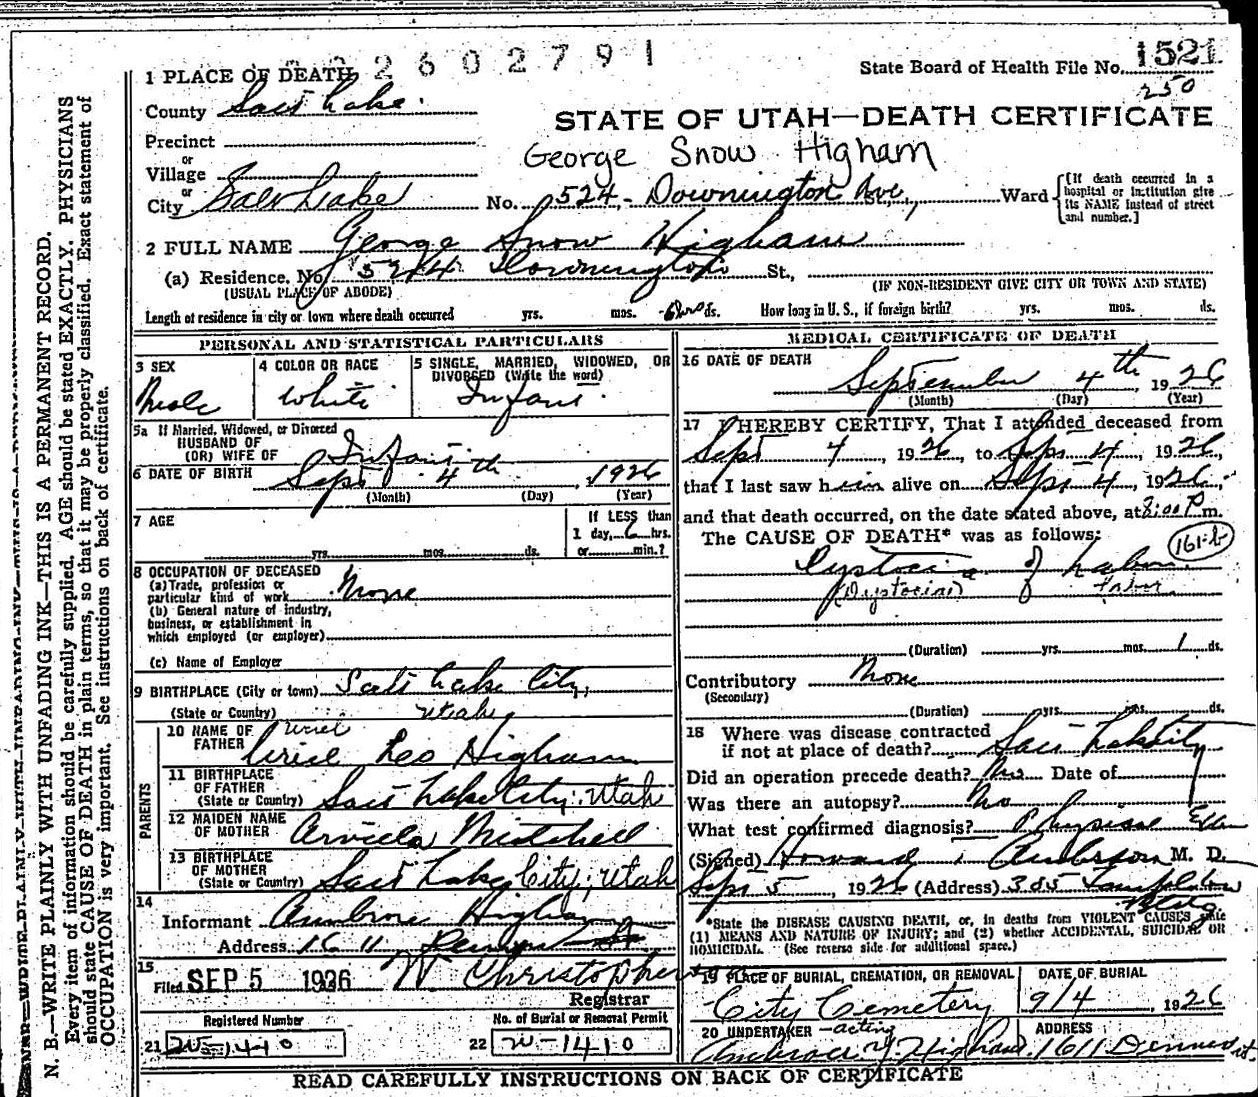 2602791
1521
State Board of Health File No.
250
1 PLACE OF DEATH
County Salt Lake.
STATE OF UTAH—DEATH CERTIFICATE
Precinct
or
Village
George Snow Higham
or
City Salt Lake No. 524 Downington Ave, St., Ward
[If death occurred in a hospital or institution give its NAME instead of street and number.]
2 FULL NAME George Snow Higham
(a) Residence. No. 524 Downington St.,
(USUAL PLACE OF ABODE) (IF NON-RESIDENT GIVE CITY OR TOWN AND STATE)
Length of residence in city or town where death occurred yrs. mos. 6 hrs ds. How long in U. S., if of foreign birth? yrs. mos. ds.
PERSONAL AND STATISTICAL PARTICULARS
3 SEX
Male
4 COLOR OR RACE
White
5 SINGLE, MARRIED, WIDOWED, OR DIVORCED (Write the word)
Infant.
5a If Married, Widowed, or Divorced
HUSBAND OF
(OR) WIFE OF Infant
6 DATE OF BIRTH Sept 4th, 1926
(Month) (Day) (Year)
7 AGE
yrs. mos. ds.
If LESS than
1 day, 6 hrs.
or min.?
8 OCCUPATION OF DECEASED
(a) Trade, profession or
particular kind of work None
(b) General nature of industry,
business, or establishment in
which employed (or employer)
(c) Name of Employer
9 BIRTHPLACE (City or town) Salt Lake City,
(State or Country) Utah
PARENTS
10 NAME OF
FATHER
Uriel
Uriel Leo Higham
11 BIRTHPLACE
OF FATHER
(State or Country) Salt Lake City, Utah
12 MAIDEN NAME
OF MOTHER Mitchell
13 BIRTHPLACE
OF MOTHER
(State or Country) Salt Lake City, Utah
14
Informant Ambrose Higham
Address 1611
15
Filed SEP 5 1926 W. Christopherson
Registrar
Registered Number
21 W-1410
No. of Burial or Removal Permit
22 W-1410
MEDICAL CERTIFICATE OF DEATH
16 DATE OF DEATH
September 4th 1926
(Month) (Day) (Year)
17 I HEREBY CERTIFY, That I attended deceased from
Sept 4, 1926, to Sept 4, 1926,
that I last saw him alive on Sept 4, 1926,
and that death occurred, on the date stated above, at 8:00 P m.
The CAUSE OF DEATH* was as follows:
161-b
Dystocia of Labor
(Dystocia) Labor
(Duration) yrs. mos. 1 ds.
Contributory None
(Secondary)
(Duration) yrs. mos. ds.
18 Where was disease contracted
if not at place of death? Salt Lake City
Did an operation precede death? No Date of
Was there an autopsy? No
What test confirmed diagnosis? Physical Exam
(Signed) Howard Anderson M. D.
Sept 5, 1926 (Address) 385 Templeton
Bldg
*State the DISEASE CAUSING DEATH, or, in deaths from VIOLENT CAUSES state
(1) MEANS AND NATURE OF INJURY; and (2) whether ACCIDENTAL, SUICIDAL OR
HOMICIDAL. (See reverse side for additional space.)
19 PLACE OF BURIAL, CREMATION, OR REMOVAL
City Cemetery
DATE OF BURIAL
9/4 1926
20 UNDERTAKER -acting
Higham
ADDRESS
1611
READ CAREFULLY INSTRUCTIONS ON BACK OF CERTIFICATE
N. B.—WRITE PLAINLY WITH UNFADING INK—THIS IS A PERMANENT RECORD.
Every item of information should be carefully supplied. AGE should be stated EXACTLY. PHYSICIANS
should state CAUSE OF DEATH in plain terms, so that it may be properly classified. Exact statement of
OCCUPATION is very important. See instructions on back of certificate.